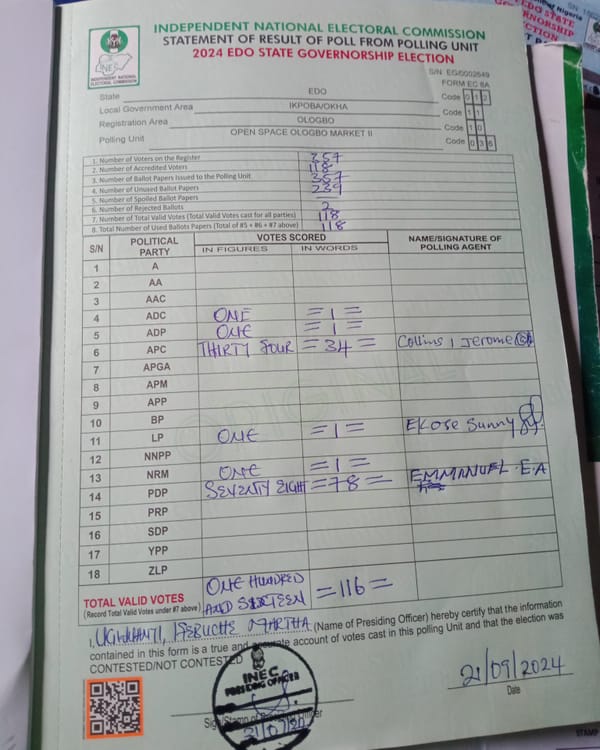 INDEPENDENT NATIONAL ELECTORAL COMMISSION
STATEMENT OF RESULT OF POLL FROM POLLING UNIT
2024 EDO STATE GOVERNORSHIP ELECTION
INEC
INDEPENDENT NATIONAL
ELECTORAL COMMISSION
S/N EG/0002649
FORM EC 8A
State EDO Code 012
Local Government Area IKPOBA/OKHA Code 11
Registration Area OLOGBO Code 10
Polling Unit OPEN SPACE OLOGBO MARKET II Code 036
1. Number of Voters on the Register 357
2. Number of Accredited Voters 118
3. Number of Ballot Papers Issued to the Polling Unit 357
4. Number of Unused Ballot Papers 239
5. Number of Spoiled Ballot Papers
6. Number of Rejected Ballots 2
7. Number of Total Valid Votes (Total Valid Votes cast for all parties) 118
8. Total Number of Used Ballots Papers (Total of #5 + #6 + #7 above) 118
S/N POLITICAL PARTY VOTES SCORED NAME/SIGNATURE OF POLLING AGENT
IN FIGURES IN WORDS
1 A
2 AA
3 AAC
4 ADC ONE =1=
5 ADP ONE =1=
6 APC THIRTY FOUR =34= Collins, Jerome
7 APGA
8 APM
9 APP
10 BP
11 LP ONE =1= Ekose Sunny
12 NNPP
13 NRM ONE =1=
14 PDP SEVENTY EIGHT =78= EMMANUEL.E.A
15 PRP
16 SDP
17 YPP
18 ZLP
TOTAL VALID VOTES ONE HUNDRED AND SIXTEEN =116=
(Record Total Valid Votes under #7 above)
ORIGINAL
I, MARTHA (Name of Presiding Officer) hereby certify that the information
contained in this form is a true and accurate account of votes cast in this polling Unit and that the election was
CONTESTED/NOT CONTESTED
INEC
PRESIDING OFFICER
21/09/2024
Date
Sign/Stamp of Presiding Officer
STAMP